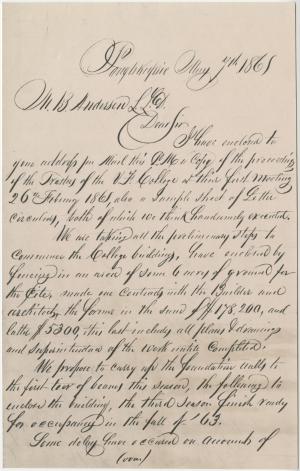 Poughkeepsie May 7th 1861
M B Anderson L.L.D.
Dear Sir
I have enclosed to
your address pr Mail this P.M. a Copy of the proceedings
of the Trustees of the V. F. College at their first meeting
26th February 1861, also a Sample Sheet of Letter
circulars, both of which we think handsomely executed.
We are taking all the preliminary steps to
commence the College buildings, have enclosed by
fencing in an area of some 6 acres of ground for
the Site, made our contracts with the Builder and
architect, the former in the sum of $178,200, and
latter $5300, this last includes all plans & drawings
and superintendence of the work until Completed.
We propose to carry up the foundation walls to
the first tier of beams this season, the following to
enclose the building, the third season finish ready
for occupancy in the fall of '63.
Some delay have occured on accounts of
(over)